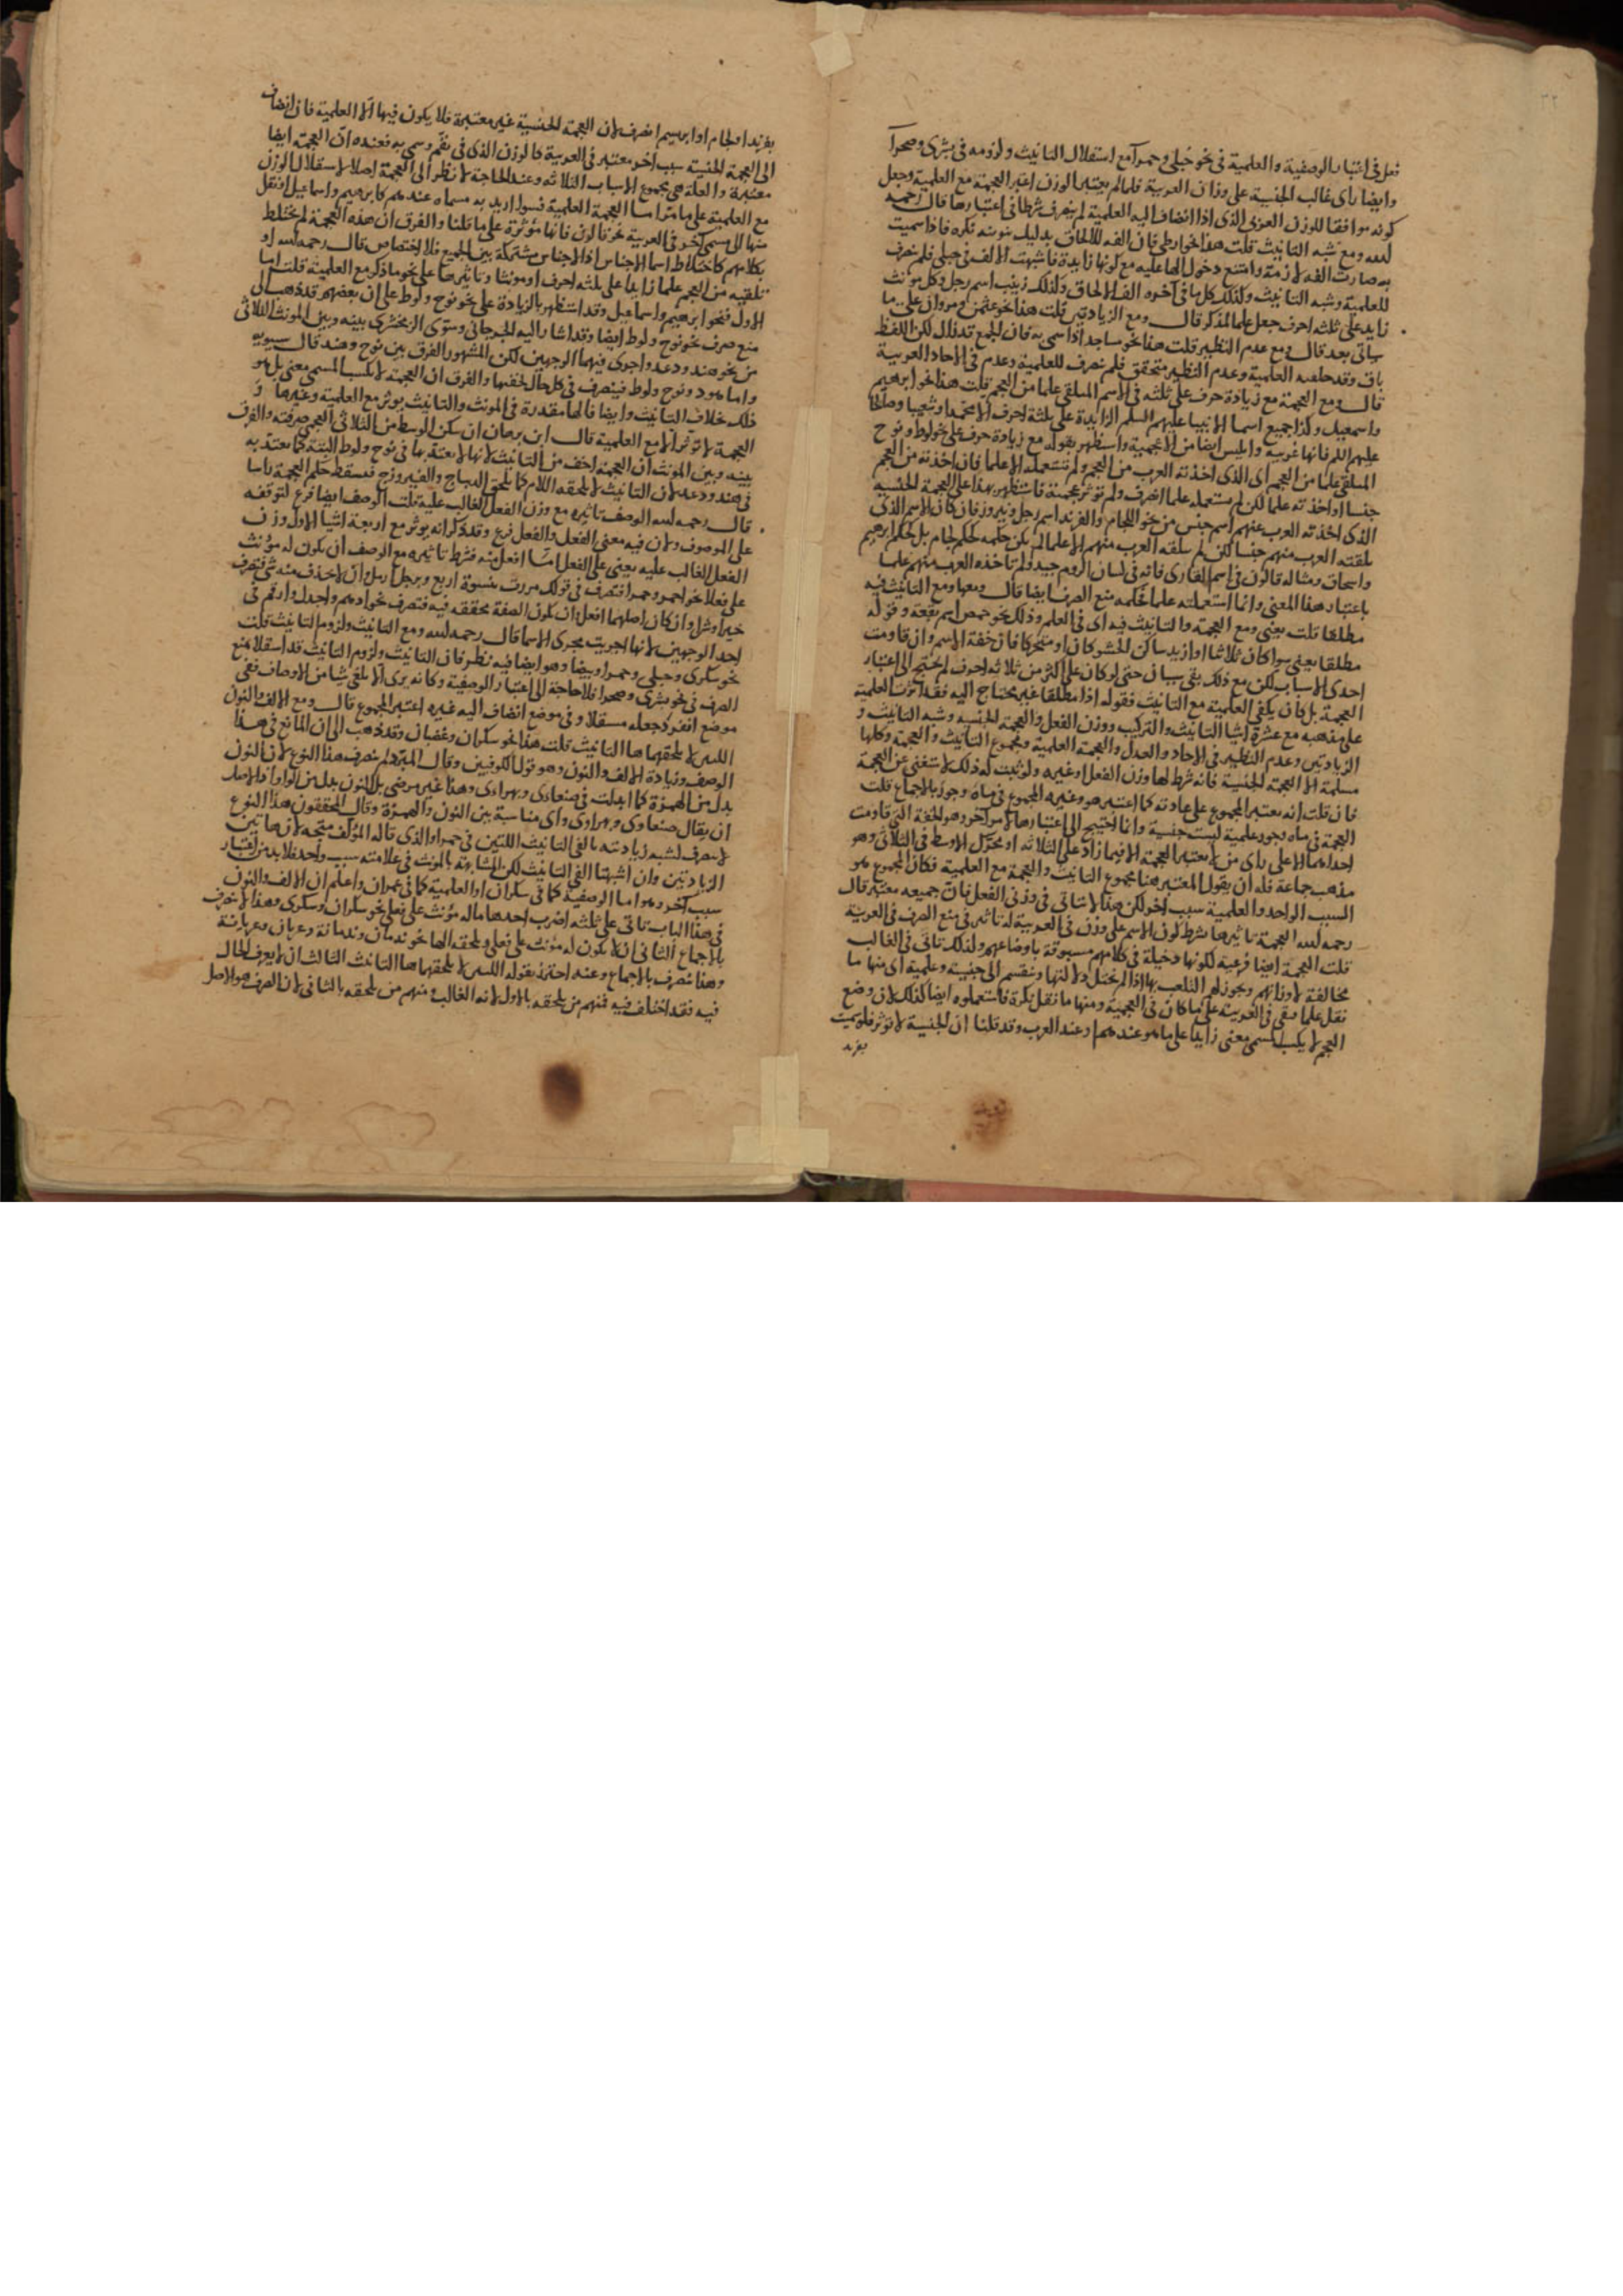 فعل في اعتبار الوصفية والعلمية في نحو حبلى وحمرآ مع استقلال التانيث ولزومه في بشرى وصحرآ
وايضا راى غالب الجنسية على وزان العربية فلما لم يعتبر الوزن اعتبر العجمة مع العلمية وجعل
كونه موافقا للوزن العربي الذي اذا انضاف اليه العلمية لم ينصرف شرطا في اعتبارها قال رحمه
لله ومع شبه التانيث قلت هذا نحو ارطى فان الفه للالحاق بدليل تنوينه نكره فاذا سميت
به صارت الفه لازمة وامتنع دخول الها عليه مع كونها زايدة فاشبهت الالف في حبلى فلم ينصرف
للعلمية وشبه التانيث وكذلك كل ما في آخره الف الالحاق وكذلك زينب اسم رجل وكل مونث
زايد على ثلثه احرف جعل علما لمذكر قال ومع الزيادتين قلت هذا نحو عثمن ومروان على ما
ياتي بعد قال ومع عدم النظير قلت هذا نحو مساجد اذا سمي به فان الجمع قد زال لكن اللفظ
باق وقد خلفه العلمية وعدم النظير متحقق فلم ينصرف للعلمية وعدم في الاحاد العربية
قال ومع العجمة مع زيادة حرف على ثلثه في الاسم المتلقى علما من العجم قلت هذا نحو ابرهيم
واسمعيل وكذا جميع اسما الانبيا عليهم السلم الزايدة على ثلثة احرف الا محمدا وشعيبا وصالحا
عليهم السلم فانها عربية وابليس ايضا من الاعجمية واستظهر بقوله مع زيادة حرف على نحو لوط ونوح
المتلقى علما من العجم اى الذي اخذته العرب من العجم ولم تستعمله الا علما فان اخذته من العجم
جنسا او اخذته علما لكن لم يستعمله علما انصرف ولم توثر عجمته فاستظهر بهذا على العجمة الجنسيه
الذي اخذته العرب عنهم اسم جنس من نحو اللجام والفرند اسم رجل ونيروز فان كان الاسم الذي
تلقته العرب منهم جنسا لكن لم تتلقه العرب منهم الا علما لم يكن حكمه حكم لجام بل حكم ابرهيم
واسحاق ومثاله قالون في اسم القارى فانه في لسان الروم جيد ولم تاخذه العرب منهم علما
باعتبار هذا المعنى وانما استعملته علما فحكمه منع الصرف ايضا قال ومعها ومع التانيث فيه
مطلقا قلت يعني ومع العجمة والتانيث فيه اى في العلم وذلك نحو حمص اسم بقعة وقوله
مطلقا يعني سوا كان ثلاثيا او ازيد ساكن الحشو كان او متحركا فان خفة الاسم وان قاومت
احدى الاسباب لكن مع ذلك بقي سببان حتى لو كان على اكثر من ثلاثه احرف لم يحتج الى اعتبار
العجمة بل كان يكفي العلمية مع التانيث فقوله اذا مطلقا غير محتاج اليه فقد اثرت العلمية
على مذهبه مع عشرة اشيا التانيث والتركيب ووزن الفعل والعجمة الجنسيه وشبه التانيث و
الزيادتين وعدم النظير في الاحاد والعدل والعجمة العلمية ومجموع التانيث والعجمة وكلها
مسلمة الا العجمة الجنسية فانه شرط لها وزن الفعل او غيره ولو ثبت له ذلك لاستغنى عن العجمة
فان قلت انه يعتبر المجموع على عادته كما اعتبر هو وغيره المجموع في ماه وجور بالاجماع قلت
العجمة في ماه وجور علمية ليست جنسية وانما احتيج الى اعتبارها لامر آخر وهو الخفة التي قاومت
احداهما الاعلى راى من لا يعتبر العجمة الا فيما زاد على الثلاثه او تحرك الاوسط في الثلاثي وهو
مذهب جماعة فله ان يقول المعتبر هنا مجموع التانيث والعجمة مع العلمية فكان المجموع هو
السبب الواحد والعلمية سبب اخر لكن هذا لا يتاتى في وزني الفعل فان جميعه معتبر قال
رحمه لله العجمة تاثيرها بشرط كون الاسم على وزن في العربية له تاثير في منع الصرف في العربية
قلت العجمة ايضا فرعية لكونها دخيلة في كلامهم مسبوقة باوضاعهم ولذلك تاتي في الغالب
مخالفة لاوزانهم ويجوز لهم التلعب بها اذا لم يختل دلالتها وتنقسم الى جنسية وعلمية اى منها ما
نقل علما فبقي في العربية على ما كان في العجمية ومنها ما نقل نكرة فاستعملوه ايضا كذلك لان وضع
العجم لا يكسب المسمى معنى زايدا على ما هو عندهم او عند العرب وقد قلنا ان الجنسية لا توثر فلو سميت
بفرند
بفرند او لجام او ابريسم انصرف لان العجمة الجنسية غير معتبرة فلا يكون فيها الا العلمية فان انضاف
الى العجمة الجنسية سبب اخر معتبر في العربية كالوزن الذي في بقم وسمي به فعنده ان العجمة ايضا
معتبرة والعلة هي مجموع الاسباب الثلاثه وعند الحاجة لا نظر الى العجمة اصلا لاستقلال الوزن
مع العلمية على ما مر اما العجمة العلمية فسوا اريد به مسماه عندهم كابرهيم واسماعيل او نقل
منها الى مسمى آخر في العربية نحو قالون فانها مؤثرة على ما قلنا والفرق ان هذه العجمة لم تختلط
بكلامهم كاختلاط اسما الاجناس اذ الاجناس مشتركة بين الجميع فلا اختصاص قال رحمه لله او
تلقيه من العجم علما زايدا على ثلثه احرف او مونثا وتاثيرها على نحو ما ذكر مع العلمية قلت اما
الاول فنحو ابرهيم واسماعيل وقد استظهر بالزيادة على نحو نوح ولوط على ان بعضهم قد ذهب الى
منع صرف نحو نوح ولوط ايضا وقد اشار اليه الجرجاني وسوى الزمخشري بينه وبين المونث الثلاثي
من نحو هند ودعد واجرى فيهما الوجهين لكن المشهور الفرق بين نوح وهند قال سيبويه
واما هود ونوح ولوط فينصرف في كل حال لخفتها والفرق ان العجمة لا تكسب المسمى معنى بل هو
فلك خلاف التانيث وايضا فالها مقدرة في المونث والتانيث يوثر مع العلمية وغيرها و
العجمة لا توثر الا مع العلمية قال ابن برهان ان سكن الوسط من الثلاثي العجمي صرفته والفرق
بينه وبين المونث ان العجمة اخف من التانيث لانها لا يعتد بها في نوح ولوط البتة كما يعتد به
في هند ودعد لان التانيث لا يلحقه اللام كما يلحق الديباج والفيروزج فيسقط حكم العجمة راسا
قال رحمه لله الوصف تاثيره مع وزن الفعل الغالب عليه قلت الوصف ايضا فرع لتوقفه
على الموصوف ولان فيه معنى الفعل والفعل فرع وقد ذكر انه يوثر مع اربعة اشيا الاول وزن
الفعل الغالب عليه يعني على الفعل اما افعل منه فشرط تاثيره مع الوصف ان يكون له مؤنث
على فعلا نحو احمر وحمرا فتصرف في قولك مررت بنسوة اربع وبرجل ارمل وان لا يحذف منه شي فتصرف
خيرا وشرا وان كان اصلهما افعل وان تكون الصفة محققه فيه فتصرف نحو ادهم واجدل وارقم في
احد الوجهين لانها اجريت مجرى الاسما قال رحمه لله ومع التانيث ولزوم التانيث قلت
نحو سكرى وحبلى وحمرا وبيضا وهو ايضا فيه نظر فان التانيث ولزوم التانيث قد استقلا بمنع
الصرف في نحو بشرى وصحرا فلا حاجة الى اعتبار الوصفية وكانه يرى الا يلغي شيا من الاوصاف ففي
موضع انفرد جعله مستقلا وفي موضع انضاف اليه غيره اعتبر المجموع قال ومع الالف والنون
اللتين لا يلحقهما ها التانيث قلت هذا نحو سكران وغضبان وقد ذهب الى ان المانع في هذا
الوصف وزيادة الالف والنون وهو قول الكوفيين وقال المبرد لم ينصرف هذا النوع لان النون
بدل من الهمزة كما ابدلت في صنعاوى وبهراوى وهذا غير مرضي بل النون بدل من الواو اذ الاصل
ان يقال صنعاوى وبهراوى واى مناسبة بين النون والهمزة وقال المحققون هذا النوع
لا ينصرف لشبه زيادتيه بالفي التانيث اللتين في حمرا والذي قاله المؤلف متجه لان هاتين
الزيادتين وان اشبهتا الفي التانيث لكن المشابهة بالمونث في علامته سبب واحد فلا بد من اعتبار
سبب آخر وهو اما الوصفية كما في سكران او العلمية كما في عمران واعلم ان الالف والنون
في هذا الباب تاتي على ثلثه اضرب احدها ماله مؤنث على فعلى نحو سكران وسكرى وهذا لا ينصرف
بالاجماع الثاني ان لا يكون له مونث على فعلى ويلحقه الها نحو ندمان وندمانة وعريان وعريانة
وهذا ينصرف بالاجماع وعنه احترز بقوله اللتين لا يلحقهما ها التانيث الثالث ان لا يعرف الحال
فيه فقد اختلف فيه فمنهم من يلحقه بالاول لانه الغالب ومنهم من يلحقه بالثاني لان الصرف هو الاصل